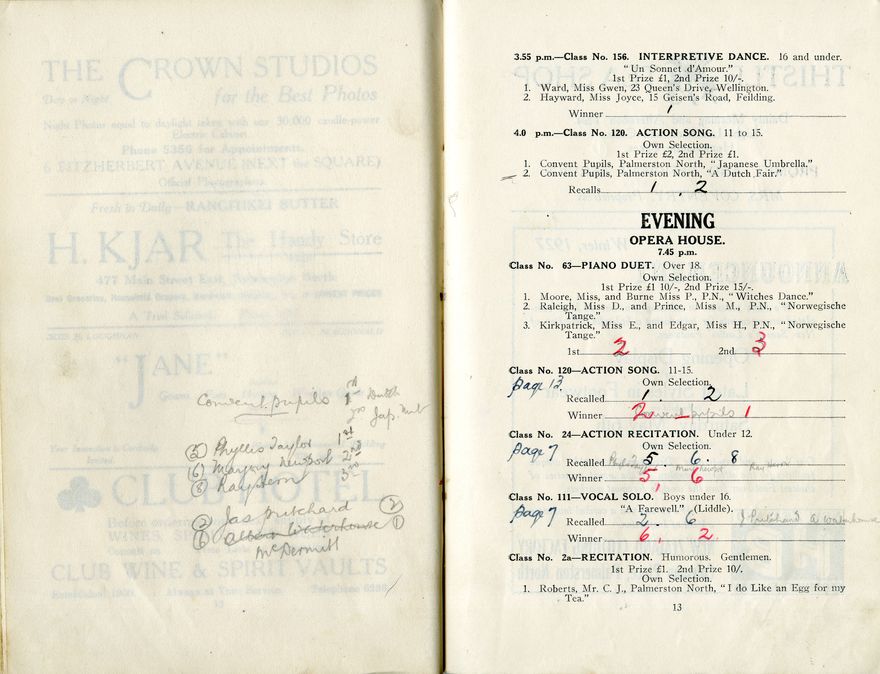 THE CROWN STUDIOS
Day or Night for the Best Photos
Night Photos equal to daylight taken with our 30,000 candle-power
Electric Cabinet
Phone 5350 for Appointments.
6 FITZHERBERT AVENUE (NEXT the SQUARE)
Official Photographers
Fresh Daily—RANGITIKEI BUTTER
H. KJAR The Handy Store
477 Main Street East, Palmerston North
A Trial Solicited.
"JANE"
Convent pupils 1st Dutch
2nd Jap.
(5) Phyllis Taylor 1st
(6) Marjory Newport 2nd
(8) Ray Heron 3rd
CLUB HOTEL
(2) Jas Pritchard (2)
(6) Albern Waterhouse (1)
McDermitt
CLUB WINE & SPIRIT VAULTS
Established 1900. Always at Your Service. Telephone
3.55 p.m.—Class No. 156. INTERPRETIVE DANCE. 16 and under.
"Un Sonnet d'Amour."
1st Prize £1, 2nd Prize 10/-.
1. Ward, Miss Gwen, 23 Queen's Drive, Wellington.
2. Hayward, Miss Joyce, 15 Geisen's Road, Feilding.
Winner 1
4.0 p.m.—Class No. 120. ACTION SONG. 11 to 15.
Own Selection.
1st Prize £2, 2nd Prize £1.
1. Convent Pupils, Palmerston North, "Japanese Umbrella."
2. Convent Pupils, Palmerston North, "A Dutch Fair."
Recalls 1 . 2
EVENING
OPERA HOUSE.
7.45 p.m.
Class No. 63—PIANO DUET. Over 18.
Own Selection.
1st Prize £1 10/-, 2nd Prize 15/-.
1. Moore, Miss, and Burne Miss P., P.N., "Witches Dance."
2. Raleigh, Miss D., and Prince, Miss M., P.N., "Norwegische
Tange."
3. Kirkpatrick, Miss E., and Edgar, Miss H., P.N., "Norwegische
Tange."
1st 2 2nd 3
Class No. 120—ACTION SONG. 11-15.
Page 13 Own Selection.
Recalled 1 . 2
Winner 2 — Convent pupils 1
Class No. 24—ACTION RECITATION. Under 12.
Page 7 Own Selection.
Recalled Phyls Taylor 5 . Marj Newport 6 . Ray Heron 8
Winner 5, 6
Class No. 111—VOCAL SOLO. Boys under 16.
Page 7 "A Farewell." (Liddle).
Recalled 2 . 6 J Pritchard A Waterhouse
Winner 6, 2.
Class No. 2a—RECITATION. Humorous. Gentlemen.
1st Prize £1. 2nd Prize 10/.
Own Selection.
1. Roberts, Mr. C. J., Palmerston North, "I do Like an Egg for my
Tea."
13